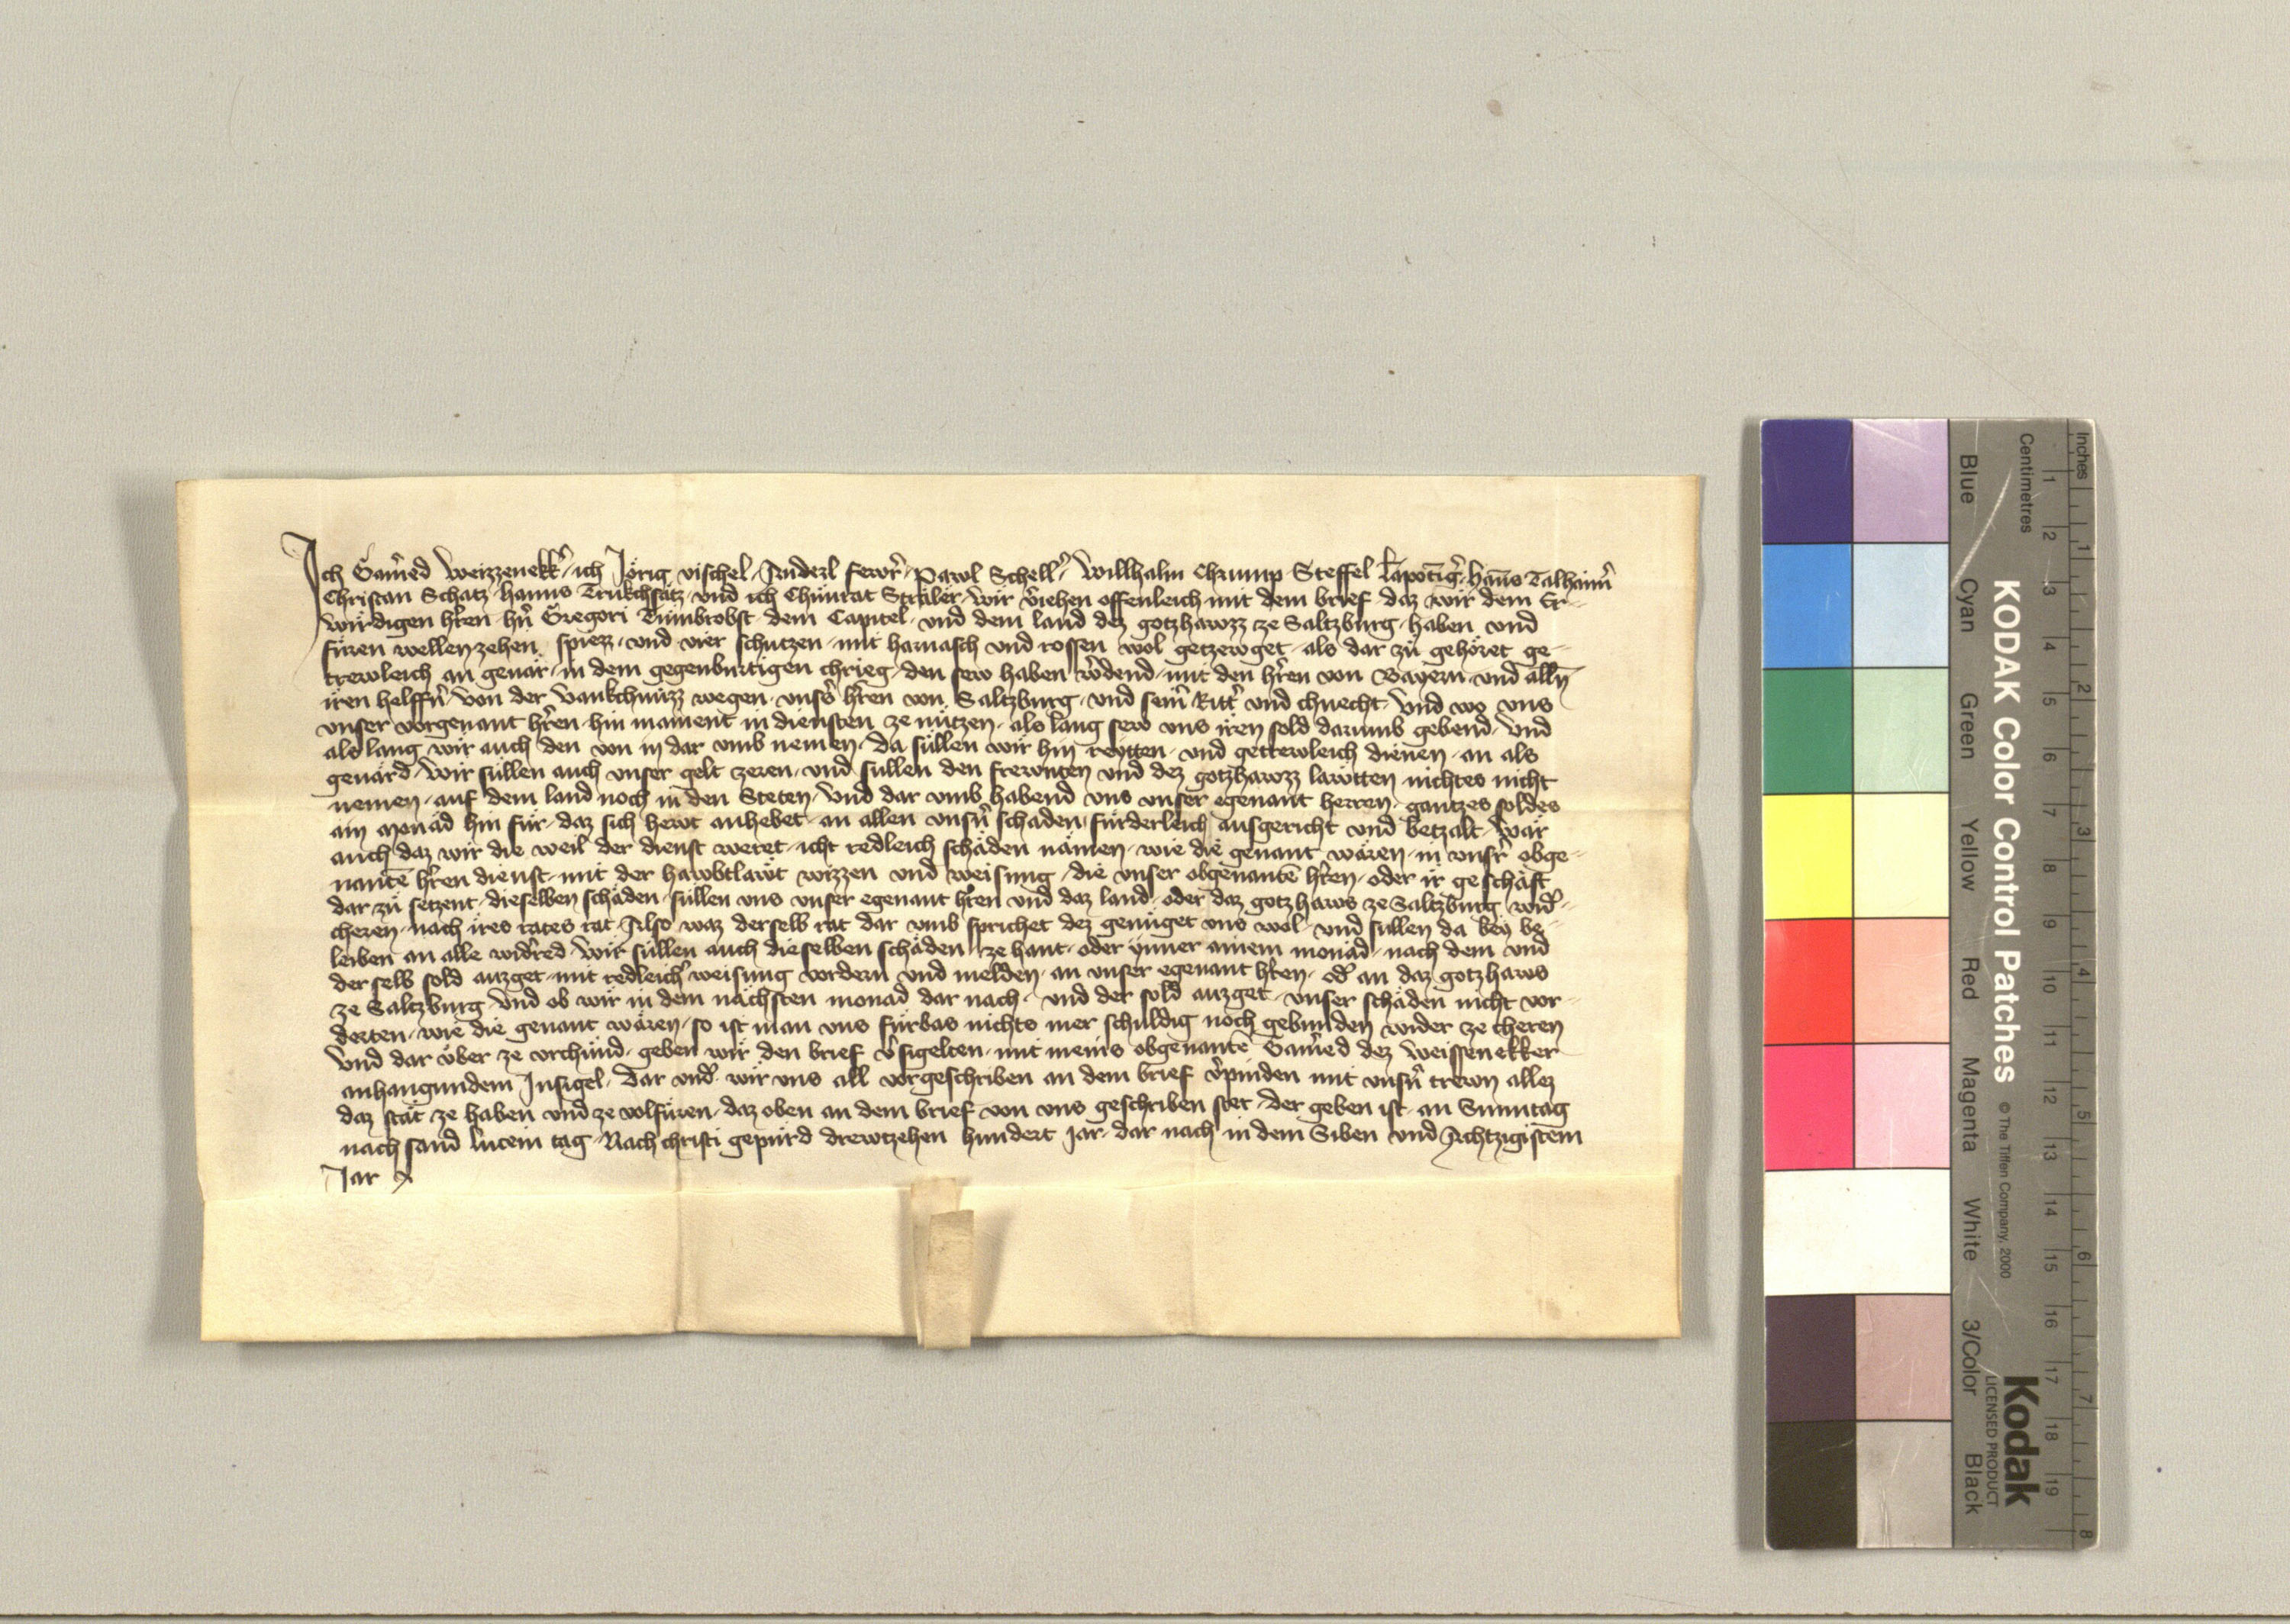 Ich Gam̄ed Weizzenekk̄ ich Jörig vischel Andezl Fewr̄ Pawl Schell̄ Willhalm Chrump Steffel Lapotīḡ hanns Talhaim̄
Christan Schatz hanns Trukchsätz und ich Chunrat Straler wir v̄iehen offenleich mit dem brief daz wir dem Er-
wirdigen h̄ren hn̄ Gregori Tumbrobst dem Capitel und dem land dez gotzhawzz ze Saltzburg haben und
füren wellen zehen spiezz und vier schutzen mit harnasch und rossen wol getzewget als dar zü gehöret ge-
trewleich an geuär in dem gegenburtigen chrieg den sew haben w̄dend mit den h̄ren von Bayern und alln̄
iren helffn̄ von der vankchnüzz wegen vnss̄ h̄ren von Saltzburg und sein̄ Ritt̄ und chnecht und wo uns
unser vorgenant h̄ren hin mainent in diensten ze nützen als lang sew uns iren sold darumb gebend und
als lang wir auch den von in dar umb nemen da süllen wir hin reytten und getrewleich dienen an als
geuärd wir süllen auch unser gelt zeren und sullen den frewnten und dez gotzhawzz lawtten nichtes nicht
nemen auf dem land noch in den Steten und dar umb habend uns unser egenant herren gantzes soldes
ain monad hin für daz sich hewt anhebet an allen unsn̄ schaden fürderleich ausgericht und betzalt wär
auch daz wir die weil der dienst weret icht redleich schäden nämen wie die genant wären in unsr̄ obge-
nantē h̄ren dienst mit der hawbtläwt wizzen und weisung die unser obgenantē h̄ren oder ir geschäft
dar zü setzent dieselben schäden süllen uns unser egenant h̄ren und daz land oder daz gotzhaws ze Saltzburg wid̄-
cheren nach ires rates rat Also waz derselb rat dar umb sprichet dez genüget uns wol und sullen da bey be-
leiben an alle wid̄red wir süllen auch dieselben schäden ze hant oder ynner ainem monad nach dem und
der selb sold auzget mit redleich̄ weisung vordern und melden an unser egenant h̄ren od̄ an daz gotzhaws
ze Saltzburg und ob wir in dem nächsten monad dar nach und der sold auzget unser schäden nicht vor-
derten wie die genant wären so ist man uns fürbas nichts mer schuldig noch gebunden wider ze cheren
Und dar über ze vrchünd geben wir den brief v̄sigelten mit meins obgenantē Gam̄ed dez Weissenekker
anhangundem Insigel dar und̄ wir uns all vorgeschriben an dem brief v̄pinden mit unsn̄ trewn allez
daz stät ze haben und ze volfüren daz oben an dem brief von uns geschriben stet der geben ist an Sunntag
nach sand lucein tag Nach christi gepürd drewtzehen hundert jar dar nach in dem Siben und Achtzigistem
Jar
KODAK Color Control Patches
© The Tiffen Company, 2000
Kodak
LICENSED PRODUCT
Inches 1 2 3 4 5 6 7 8
Centimetres 1 2 3 4 5 6 7 8 9 10 11 12 13 14 15 16 17 18 19
Blue Cyan Green Yellow Red Magenta White 3/Color Black